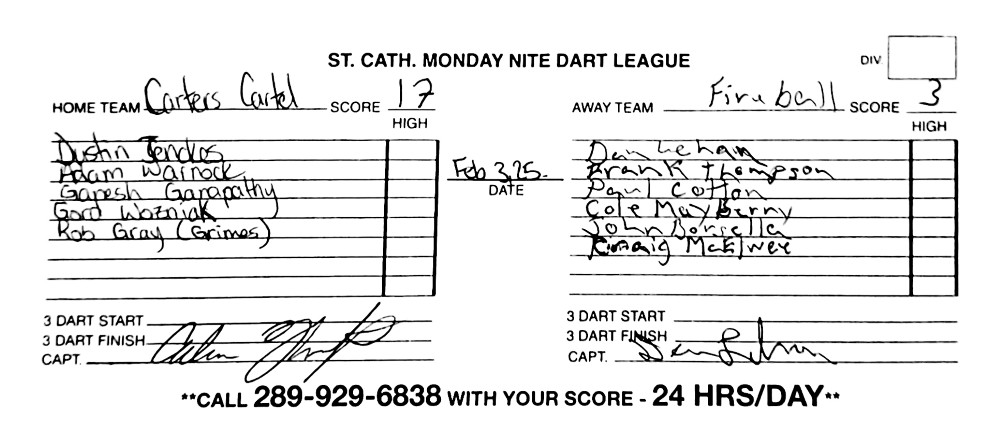 ST. CATH. MONDAY NITE DART LEAGUE
DIV.
HOME TEAM Carters Cartel SCORE 17
HIGH
AWAY TEAM Fireball SCORE 3
HIGH
Dustin Jenckos
Adam Warnock
Ganesh Ganapathy
Gord Wozniak
Rob Gray (Grimes)
Feb 3, 25.
DATE
Dan Lehan
Frank Thompson
Paul Cotton
Cole Mayberry
John Borsella
Craig McElwee
3 DART START
3 DART FINISH
CAPT.
3 DART START
3 DART FINISH
CAPT.
**CALL 289-929-6838 WITH YOUR SCORE - 24 HRS/DAY**